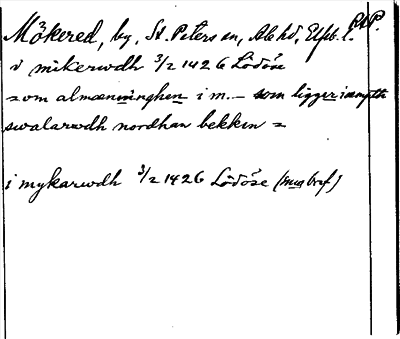 Mökered, by, St. Peters sn, Ale hd, Elfsb. l. RAP.
i mikerwdh 3/2 1426 Lödöse
= om almænninghen i m. – som ligger i
swalarwdh nordhan bekken =
i mykarwdh 3/2 1426 Lödöse (bref)